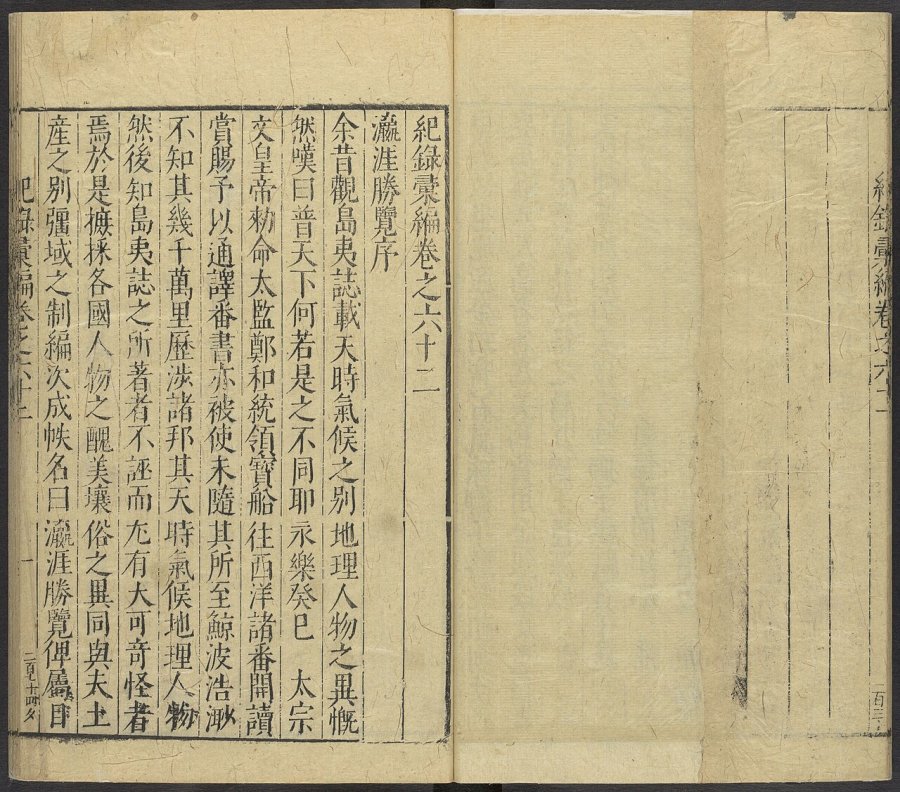 紀錄彙編卷之六十二
紀錄彙編卷之六十二
瀛涯勝覽序
余昔觀島夷誌載天時氣候之別地理人物之異慨
然嘆曰普天下何若是之不同耶永樂癸巳 太宗
文皇帝勑命太監鄭和統領寶船往西洋諸番開讀
賞賜予以通譯番書亦被使末隨其所至鯨波浩渺
不知其幾千萬里歷涉諸邦其天時氣候地理人物
然後知島夷誌之所著者不誣而尢有大可竒怪者
焉於是摭採各國人物之醜美壤俗之異同與夫土
産之別彊域之制編次成帙名曰瀛涯勝覽俾屬目
紀錄彙編卷之六十二
一